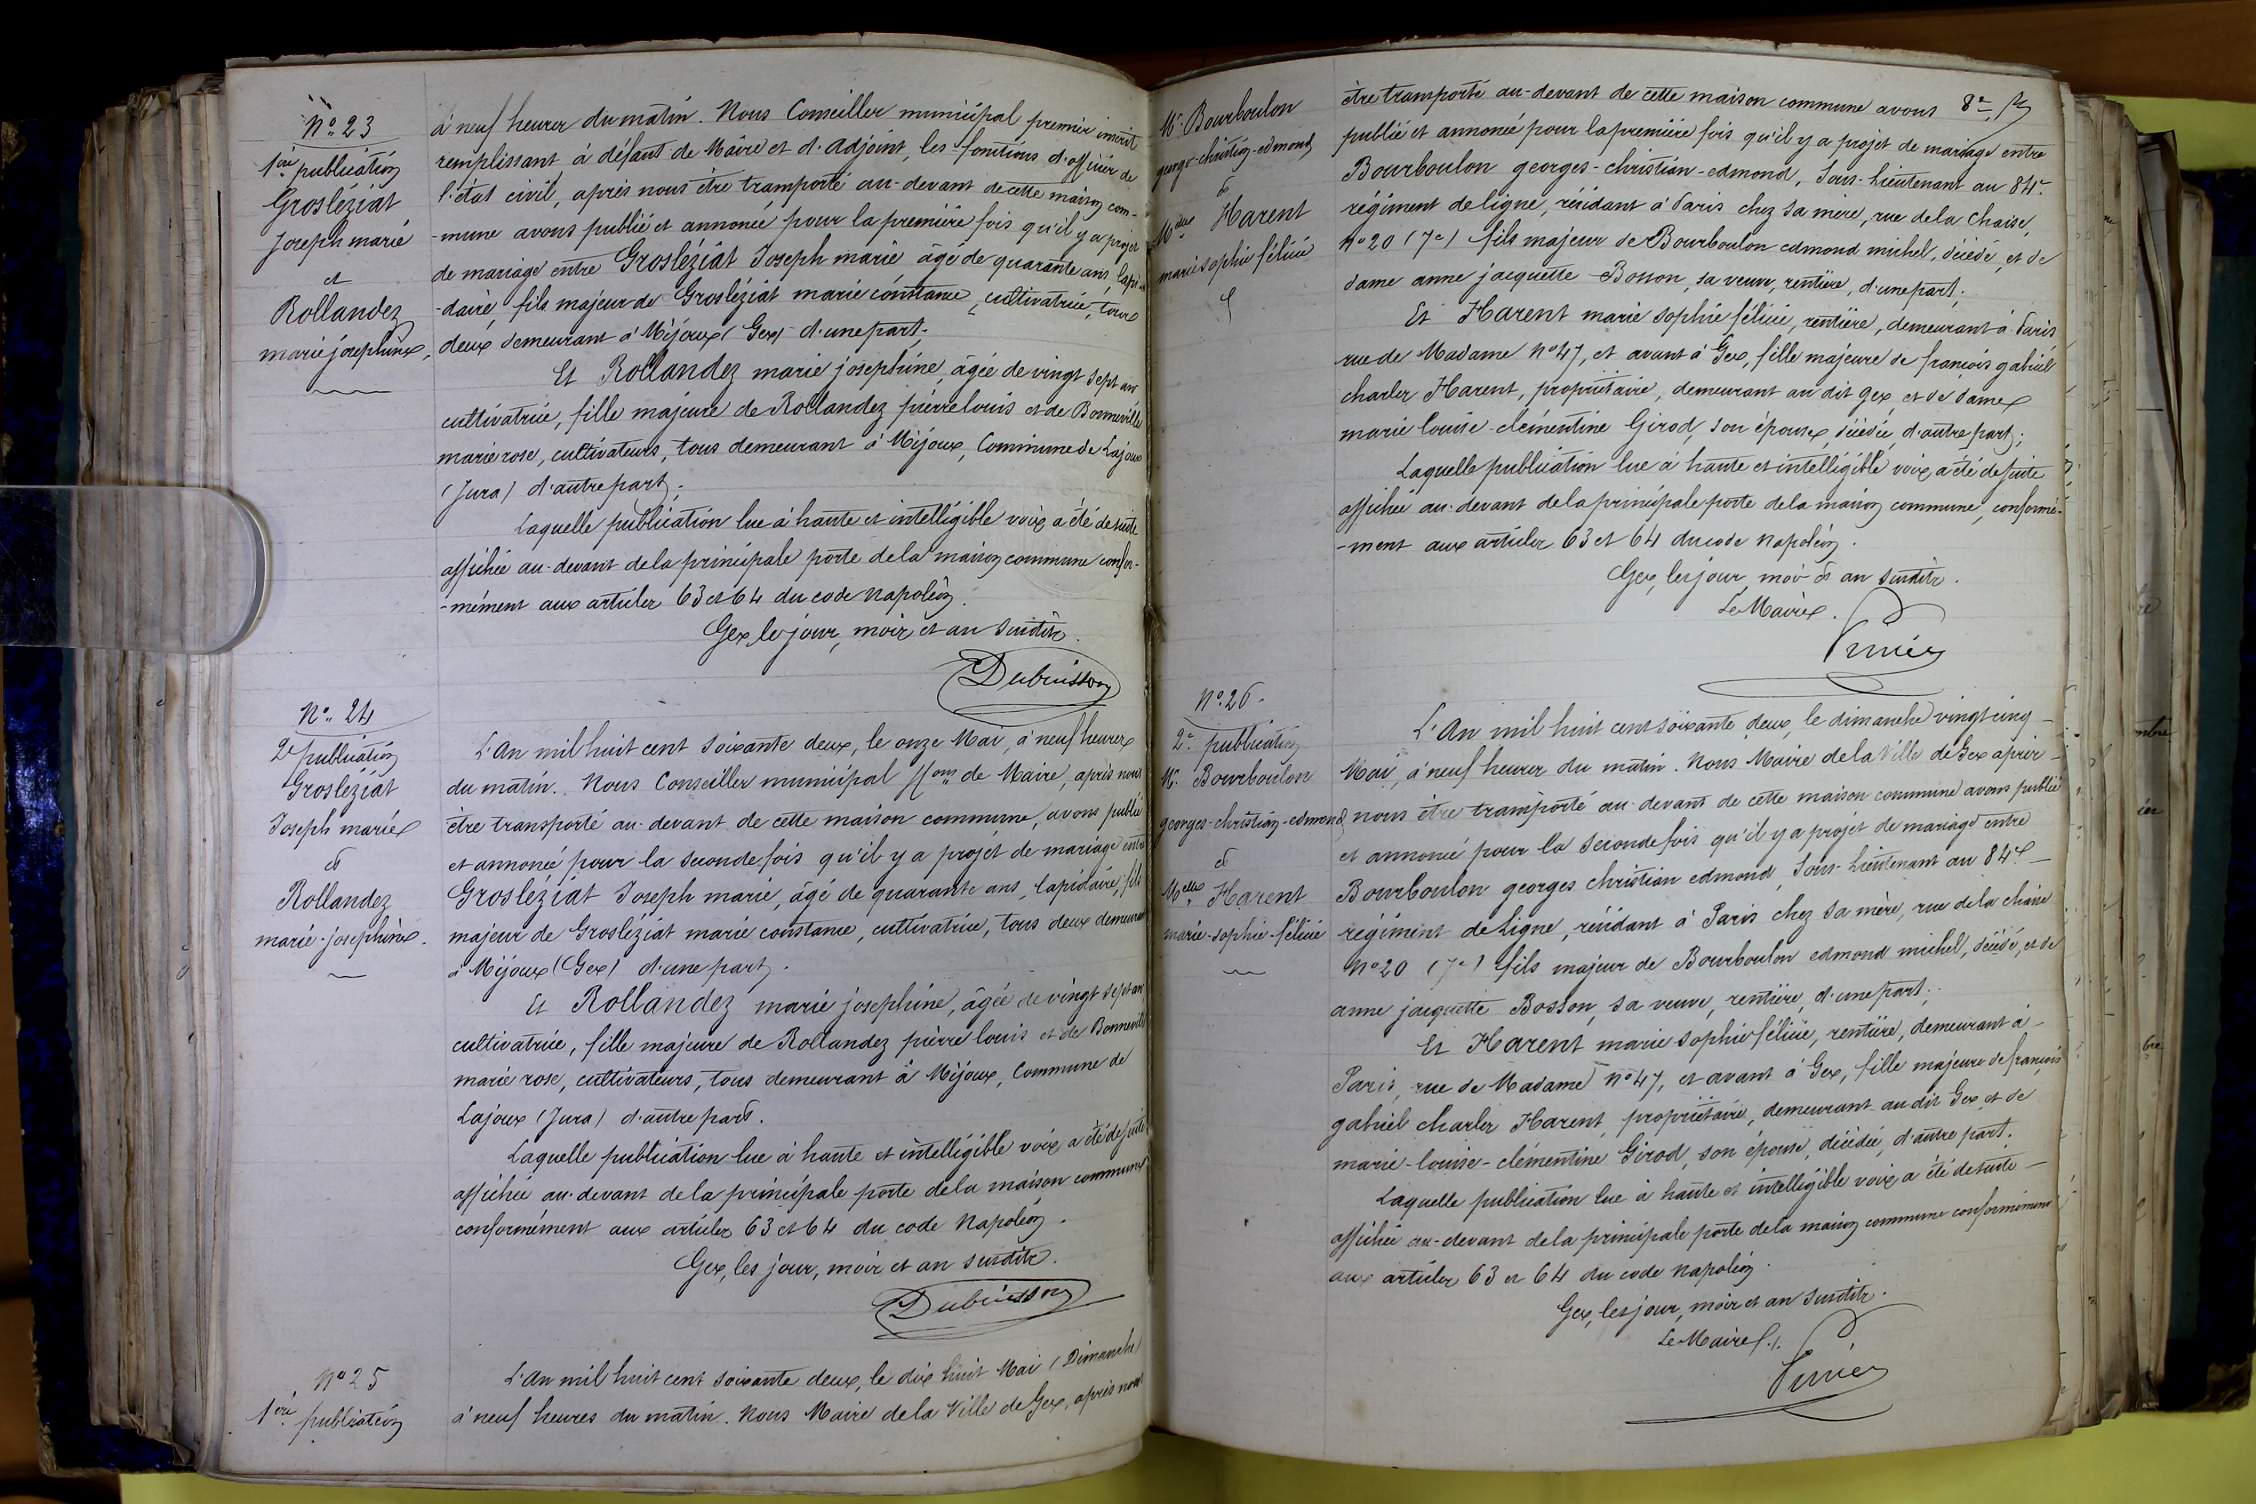 N° 23
1ère publication
Grosléziat
Joseph marie
et
Rollandez
marie josephine,
à neuf heures du matin. Nous Conseiller municipal premier inscrit
remplissant à défaut de Maire et d'adjoint, les fonctions d'officier de
l'état civil, après nous être transporté au-devant de cette maison com-
-mune avons publié et annoncé pour la première fois qu'il y a projet
de mariage entre Grosléziat Joseph marie âgé de quarante ans, lapi-
-daire, fils majeur de Grosléziat marie constance, cultivatrice, tous
deux demeurant à Mijoux (Gex) d'une part;
Et Rollandez marie josephine, âgée de vingt sept ans
cultivatrice, fille majeure de Rollandez pierre louis et de Bonneville
marie rose, cultivateurs, tous demeurant à Mijoux, Commune de Lajoux
(Jura) d'autre part;
Laquelle publication lue à haute et intelligible voix a été de suite
affichée au-devant de la principale porte de la maison commune confor-
-mément aux articles 63 et 64 du code napoléon.
Gex, les jour, mois et an susdits.
Dubuisson
N° 24
2e publication
Grosléziat
Joseph marie
et
Rollandez
marie-josephine.
L'An mil huit cent soixante deux, le onze Mai, à neuf heures
du matin. Nous Conseiller municipal ffons de Maire, après nous
être transporté au-devant de cette maison commune, avons publié
et annoncé pour la seconde fois qu'il y a projet de mariage entre
Grosléziat Joseph marie, âgé de quarante ans, lapidaire, fils
majeur de Grosléziat marie constance, cultivatrice, tous deux demeurant
à Mijoux (Gex) d'une part.
Et Rollandez marie josephine, âgée de vingt sept ans
cultivatrice, fille majeure de Rollandez pierre louis et de Bonneville
marie rose, cultivateurs, tous demeurant à Mijoux, Commune de
Lajoux (Jura) d'autre part.
Laquelle publication lue à haute et intelligible voix a été de suite
affichée au-devant de la principale porte de la maison commune
conformément aux articles 63 et 64 du code Napoléon.
Gex, les jour, mois et an susdits.
Dubuisson
N° 25
1ère publication
L'An mil huit cent soixante deux, le dix huit Mai (Dimanche)
à neuf heures du matin. Nous Maire de la Ville de Gex, après nous
Mr. Bourboulon
george-christian-edmond
et
Melle Harent
marie sophie félicie
être transporté au-devant de cette maison commune avons 8e
publié et annoncé pour la première fois qu'il y a projet de mariage entre
Bourboulon georges-christian-edmond, Sous-Lieutenant au 84e
régiment de ligne, résidant à Paris chez sa mère, rue de la Chaise,
n° 20 (7e) fils majeur de Bourboulon edmond michel, décédé, et de
dame anne jacquette Bosson, sa veuve, rentière, d'une part;
Et Harent marie sophie félicie, rentière, demeurant à Paris
rue de Madame N° 47, et avant à Gex, fille majeure de françois gabriel
charles Harent, propriétaire, demeurant au dit gex, et de dame
marie louise-clémentine Girod, son épouse, décédée, d'autre part;
Laquelle publication lue à haute et intelligible voix a été de suite
affichée au-devant de la principale porte de la maison commune, conformé-
-ment aux articles 63 et 64 du code napoléon.
Gex, les jour mois et an susdits.
Le Maire.
N° 26.
2e publication
Mr. Bourboulon
georges-christian-edmond
et
Melle Harent
marie-sophie-félicie
L'An mil huit cent soixante deux, le dimanche vingt cinq
Mai, à neuf heures du matin. Nous Maire de la Ville de Gex après
nous être transporté au-devant de cette maison commune avons publié
et annoncé pour la seconde fois qu'il y a projet de mariage entre
Bourboulon georges christian edmond, Sous-Lieutenant au 84e
régiment de Ligne, résidant à Paris chez sa mère, rue de la chaise
N° 20 (7e) fils majeur de Bourboulon edmond michel, décédé, et de
anne jacquette Bosson, sa veuve, rentière, d'une part;
Et Harent marie sophie félicie, rentière, demeurant à
Paris, rue de Madame N° 47, et avant à Gex, fille majeure de françois
gabriel charles Harent, propriétaire, demeurant au dit Gex et de
marie-louise-clémentine Girod, son épouse, décédée, d'autre part.
Laquelle publication lue à haute et intelligible voix a été de suite
affichée au-devant de la principale porte de la maison commune conformément
aux articles 63 et 64 du code napoléon.
Gex, les jour, mois et an susdits.
Le Maire.